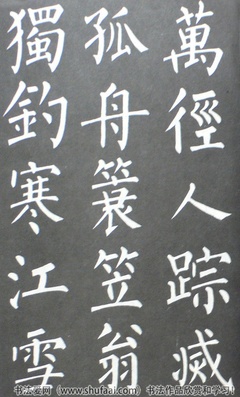 萬徑人踪滅
孤舟簑笠翁
獨釣寒江雪
书法爱网（www.shufaai.com）书法作品欣赏和学习